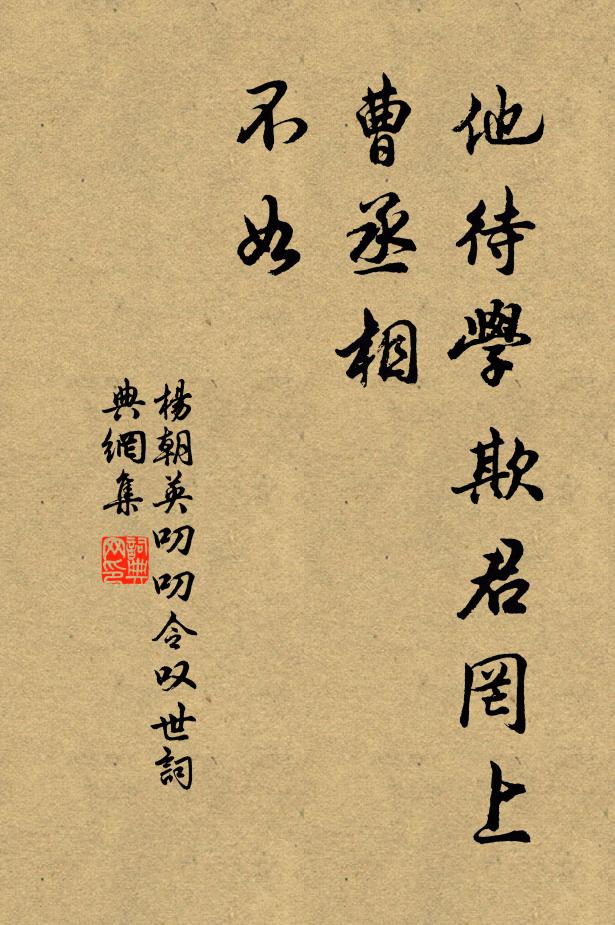 他待學欺君罔上
曹丞相
不如
楊朝英叨叨令叹世詞
典網集
詞典
网印